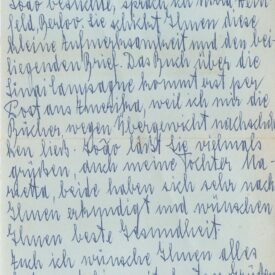 besuchte, sprach ich
Sie schickt Ihnen diese
kleine Aufmerksamkeit und den bei-
liegenden Brief. Das Buch über die
Sinai Campagne kommt erst per
Post aus Amerika, weil ich mir die
Bücher wegen Übergewicht nachsen
den ließ. läßt Sie vielmals
grüßen, auch meine Tochter Ma-
beide haben sich sehr nach
Ihnen erkundigt und wünschen
Ihnen beste Gesundheit
Auch ich wünsche Ihnen alles